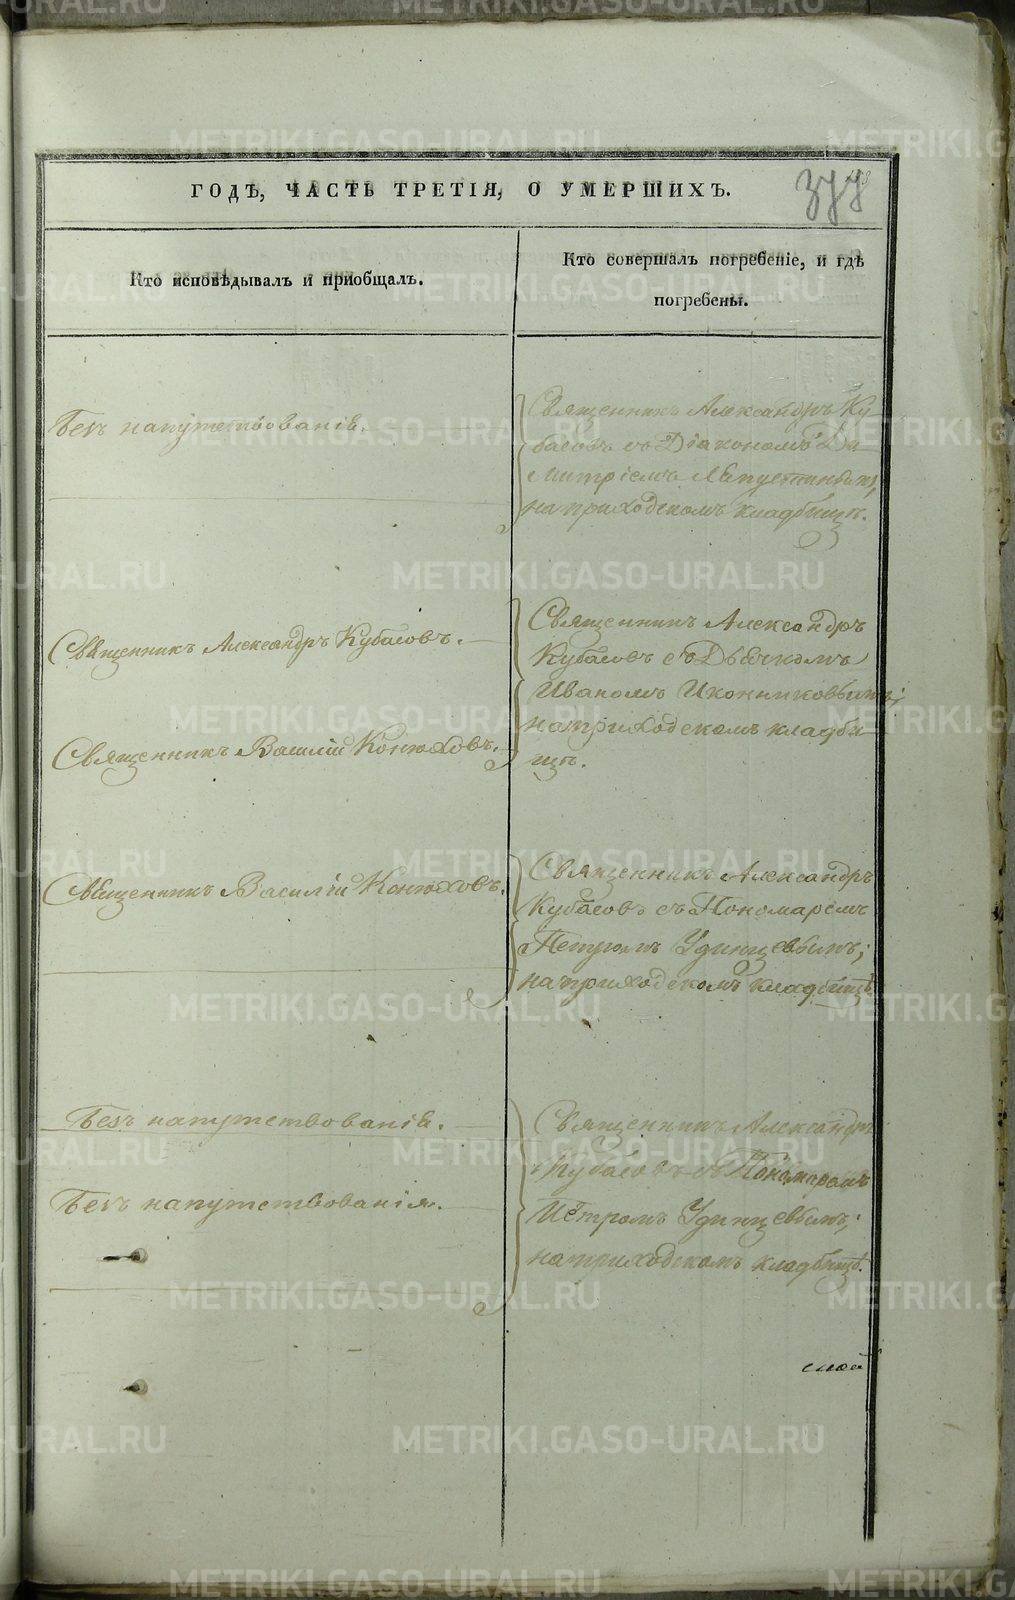 ГОДѢ, ЧАСТЬ ТРЕТІЯ, О УМЕРШИХЪ.
377
Кто исповѣдывалъ и пріобщалъ.
Кто совершалъ погребеніе, и гдѣ
погребены.
Безъ напутствованія.
Священникъ Александръ Ку-
басовъ съ Діакономъ Ди-
митріемъ
на приходскомъ кладбищѣ.
Священникъ Александръ Кубасовъ.
Священникъ Василій Конюховъ.
Священникъ Александръ
Кубасовъ съ Дьячкомъ
Иваномъ Иконниковымъ;
на приходскомъ кладби-
щѣ.
Священникъ Василій Конюховъ.
Священникъ Александръ
Кубасовъ съ Пономаремъ
Петромъ Удинцевымъ;
на приходскомъ кладбищѣ.
Безъ напутствованія.
Безъ напутствованія.
Священникъ Александръ
Кубасовъ съ Пономаремъ
Петромъ Удинцевымъ;
на приходскомъ кладбищѣ.
METRIKI.GASO-URAL.RU